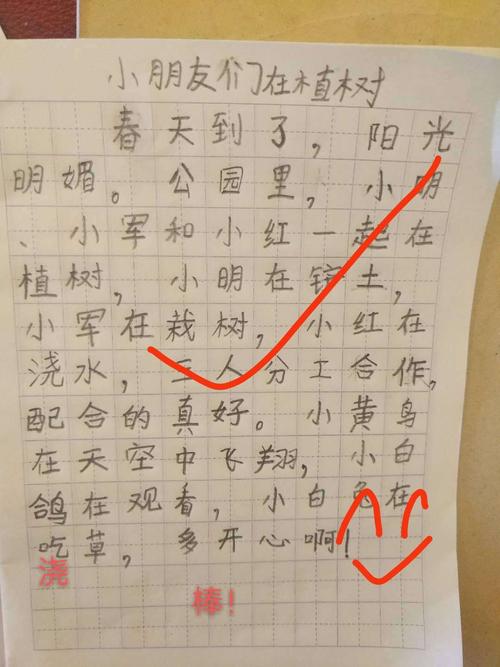 小朋友们在植树
春天到了，阳光
明媚。公园里，小明
、小军和小红一起在
植树，小明在铲土，
小军在栽树，小红在
浇水，三人分工合作，
配合的真好。小黄鸟
在天空中飞翔，小白
鸽在观看，小白兔在
吃草，多开心啊！
浇
棒！